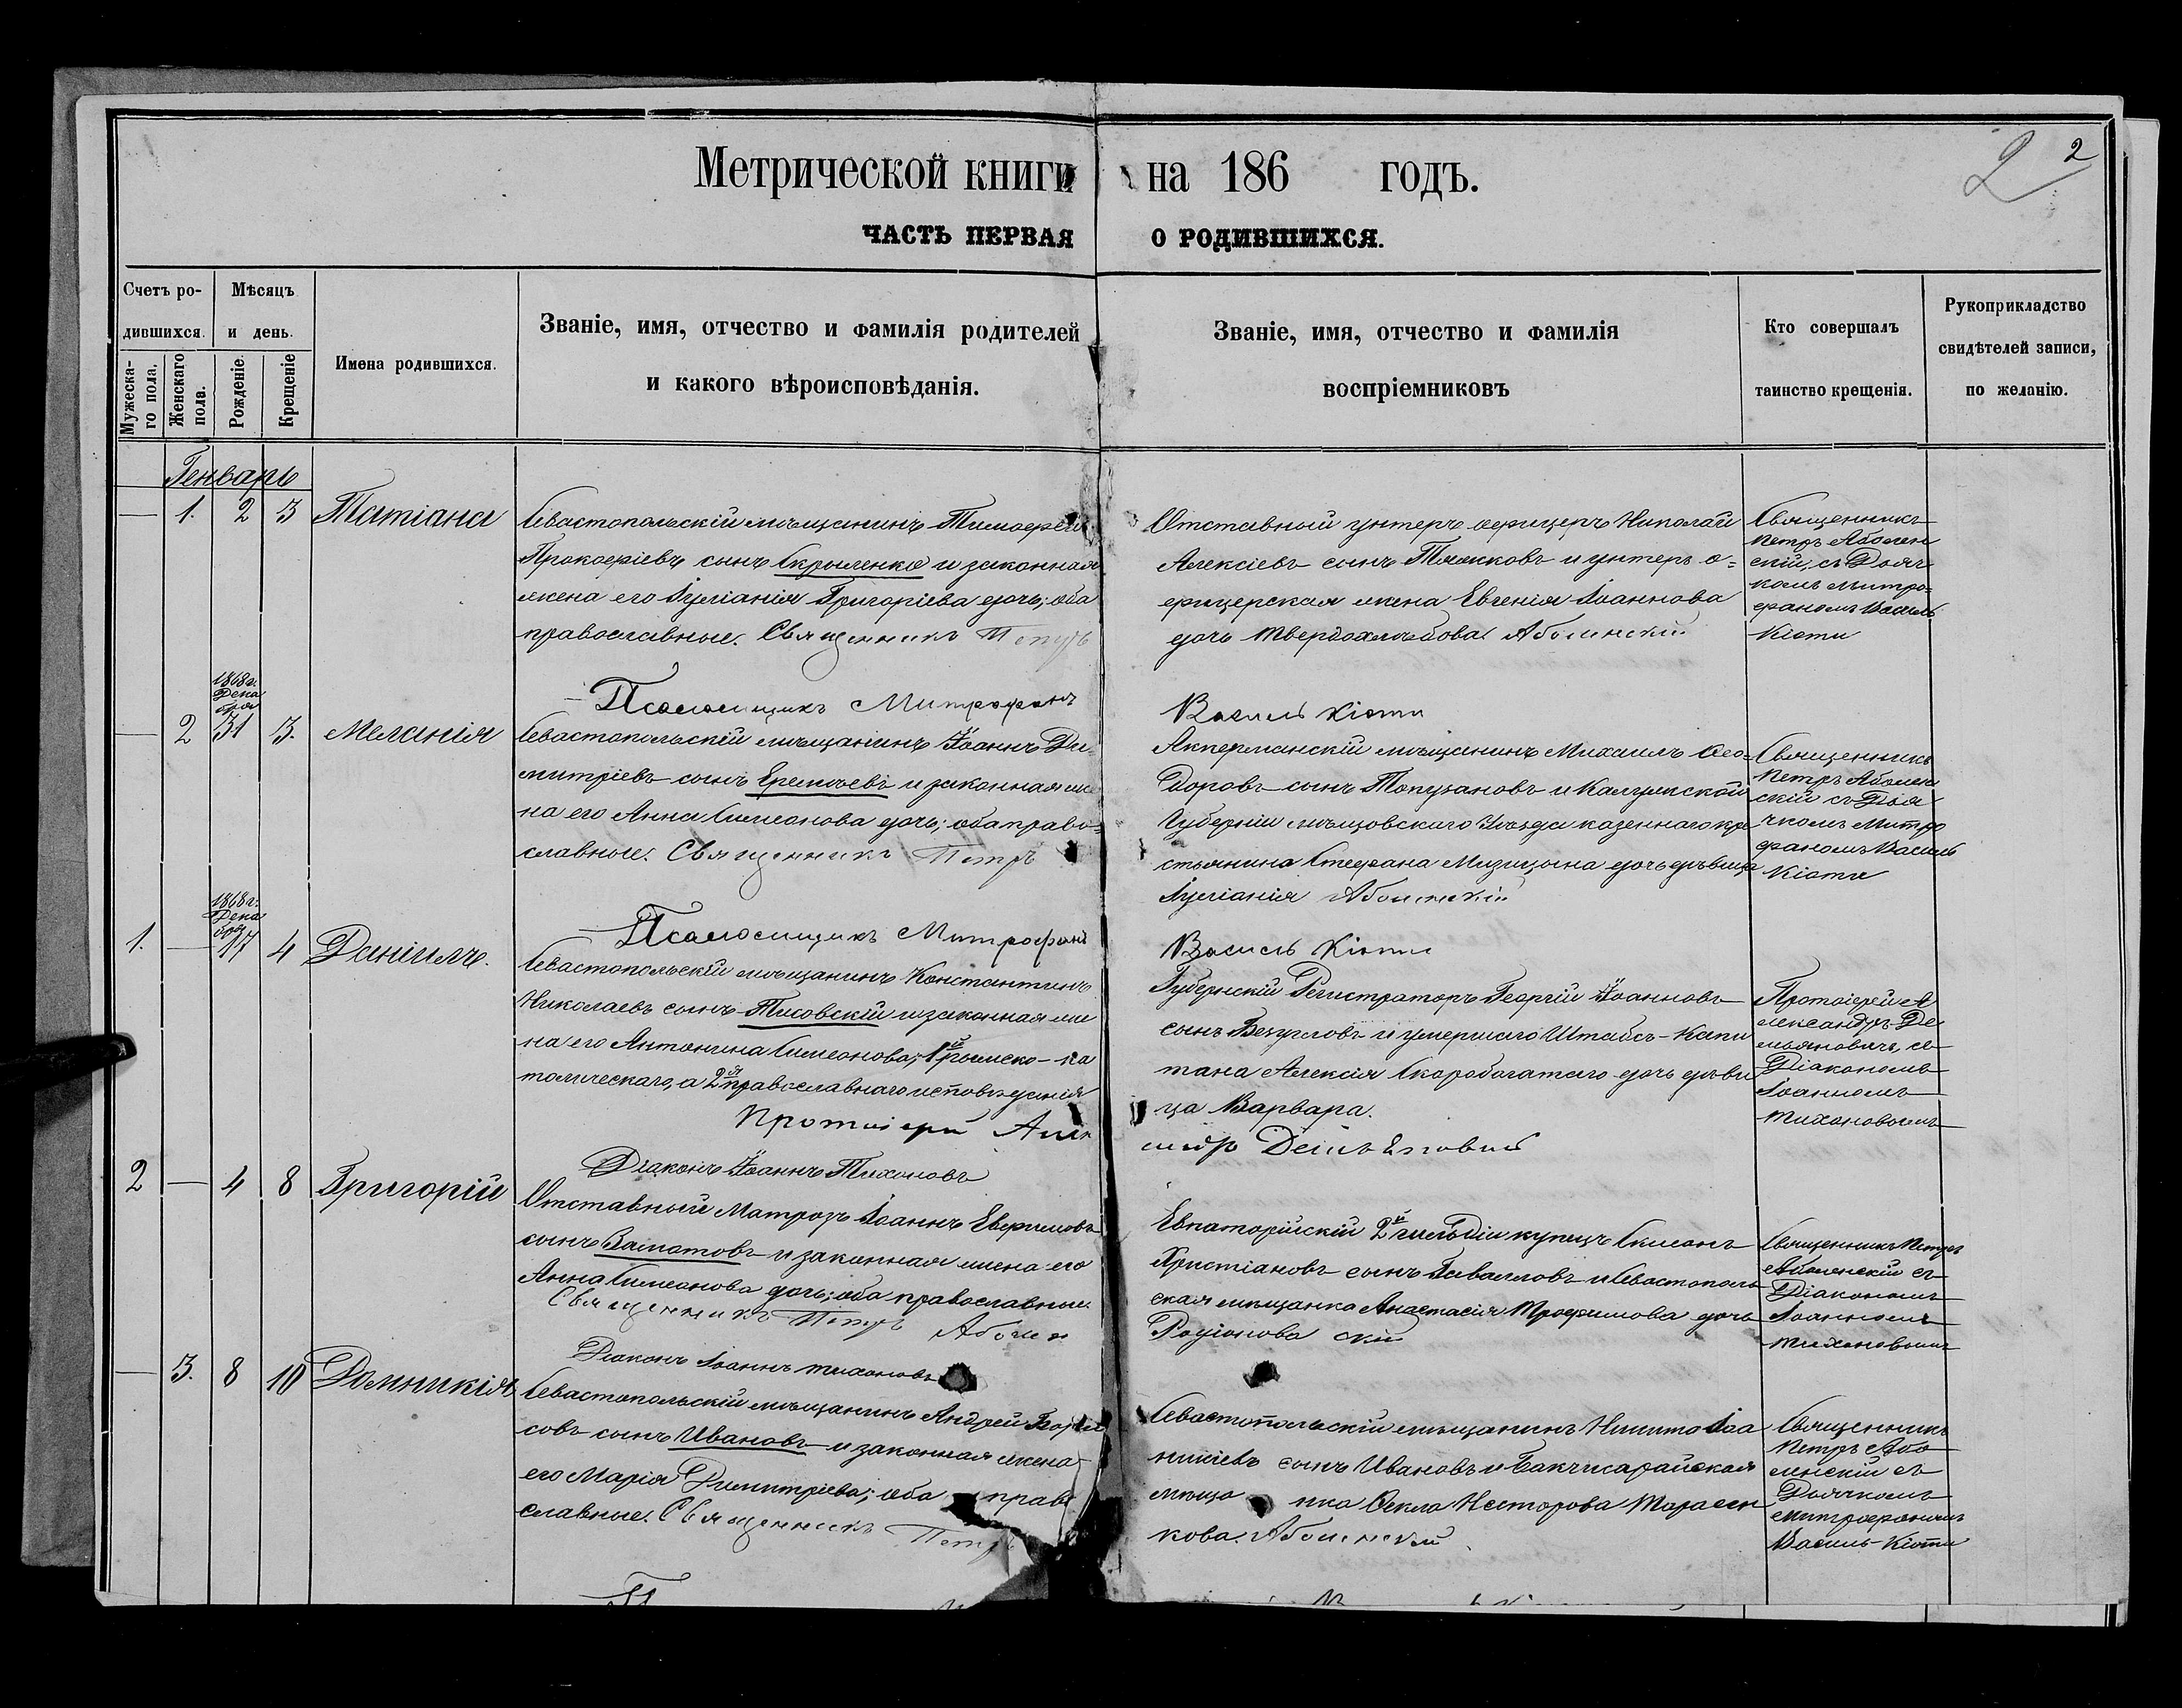 Метрической книги на 186 годъ.
2
2
ЧАСТЬ ПЕРВАЯ О РОДИВШИХСЯ.
Счетъ ро-
дившихся.
Мужеска-
го пола.
Женскаго
пола.
Мѣсяцъ
и день.
Рожденіе.
Крещеніе
Имена родившихся.
Званіе, имя, отчество и фамилія родителей
и какого вѣроисповѣданія.
Званіе, имя, отчество и фамилія
воспріемниковъ
Кто совершалъ
таинство крещенія.
Рукоприкладство
свидѣтелей записи,
по желанію.
Генварь
— 1. 2 3 Татіана
Севастопольскій мѣщанинъ Тимоѳей
Прокофіевъ сынъ Скрыленко и законная
жена его Іуліанія Григоріева дочь; оба
православные. Священникъ Петръ
Псаломщикъ Митрофанъ
Отставный унтеръ офицеръ Николай
Алексіевъ сынъ и унтеръ о-
фицерская жена Евгенія Іоаннова
дочь Твердохлѣбова. Аболинскій
Василь Кіоти
Священникъ
Петръ Аболен
скій, съ Дьяч
комъ Митро-
фаномъ Василь
Кіоти
— 2 1868 г. Дека
бря
31 3. Меланія
Севастопольскій мѣщанинъ Іоаннъ Ди-
митріевъ сынъ Еремѣевъ и законная же
на его Анна Симеонова дочь; оба право-
славные. Священникъ Петръ
Псаломщикъ Митрофанъ
Аккерманскій мѣщанинъ Михаилъ Ѳео-
доровъ сынъ Топузановъ и Калужской
Губерніи мѣщовскаго Уѣзда казеннаго кре
стьянина Стефана Мизицына дочь дѣвица
Іуліанія Аболинскій
Василь Кіоти
Священникъ
Петръ Аболен
скій съ Дья
чкомъ Митро
фаномъ Василь
Кіоти
1. — 1868 г.
Дека
бря
17 4 Даніилъ.
Севастопольскій мѣщанинъ Константинъ
Николаевъ сынъ Тисовскій и законная же
на его Антонина Симеонова; 1й римско-ка
толическаго, а 2я православнаго исповѣданія
Протоіерей Алек
Діаконъ Іоаннъ Тихоновъ
Губернскій Регистраторъ Георгій Іоанновъ
сынъ Безугловъ и умершаго Штабсъ-Капи
тана Алексія Скоробогатаго дочь дѣви
ца Варвара.
сандръ Демьяновичъ
Протоіерей А
лександръ Де
мьяновичъ, съ
Діакономъ
Іоанномъ
Тихоновымъ
2 — 4 8 Григорій
Отставный Матрозъ Іоаннъ Евфимовъ
сынъ Заматовъ и законная жена его
Анна Симеонова дочь; оба православные.
Священникъ Петръ Аболин
Діаконъ Іоаннъ Тихоновъ
Евпаторійскій 2й гильдіи купецъ Симеонъ
Христіановъ сынъ и Севастополь
ская мѣщанка Анастасія Трофимова дочь
Родіонова скій
Священникъ Петръ
Аболенскій съ
Діакономъ
Іоанномъ
Тихоновымъ
— 3. 8 10 Домникія
Севастопольскій мѣщанинъ Андрей Бори
совъ сынъ Ивановъ и законная жена
его Марія Димитріева; оба право
славные. Священникъ Петръ
Севастопольскій мѣщанинъ Никита Іоа
никіевъ сынъ Ивановъ и Бакчисарайская
мѣща нка Ѳекла Несторова Тарасен
кова. Аболинскій
Священникъ
Петръ Або
линскій съ
Дьячкомъ
Митрофаномъ
Василь-Кіоти